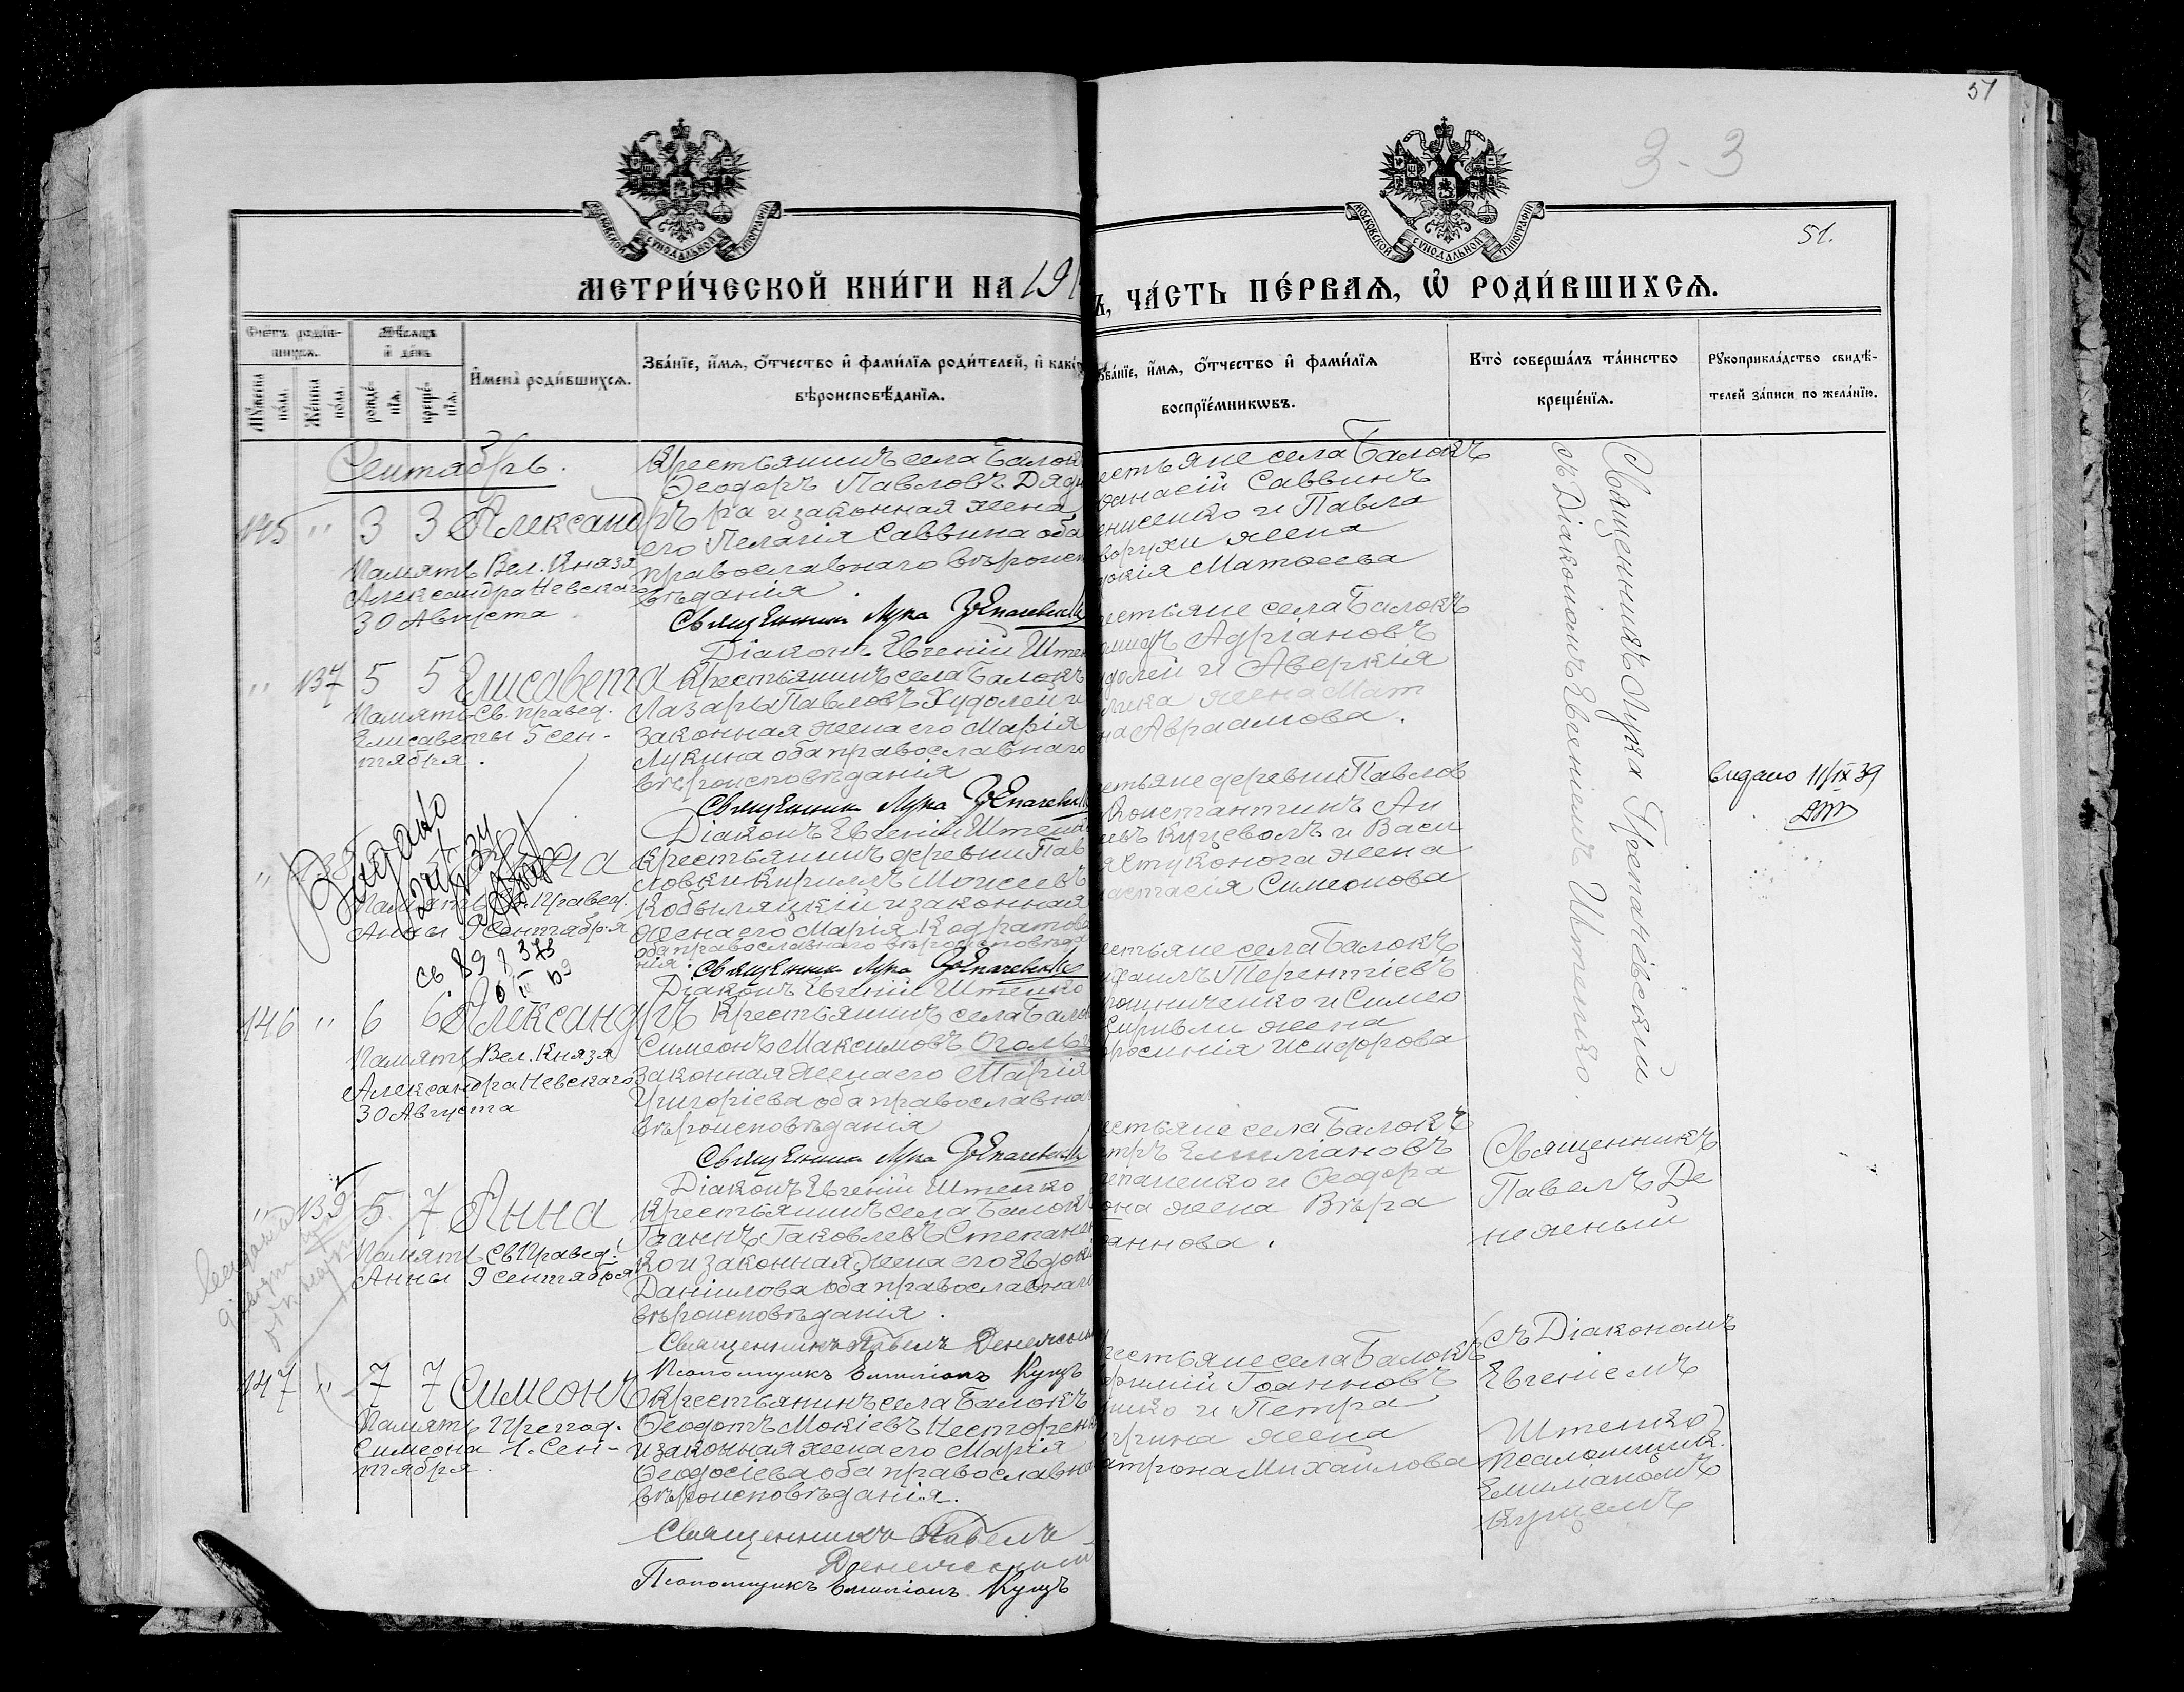 51
3-3
51.
МОСКОВСКОЙ СѴНОДАЛЬНОЙ ТИПОГРАФІИ
МОСКОВСКОЙ СѴНОДАЛЬНОЙ ТИПОГРАФІИ
МЕТРИ́ЧЕСКОЙ КНИ́ГИ НА 19
Ъ, ЧА́СТЬ ПЕ́РВАѦ, Ѡ҆ РОДИ́ВШИХСѦ.
Сче́тъ роди́в-
шихсѧ.
Мѣ́сѧцъ
и҆ де́нь
Мꙋ́жеска по́ла.
Же́нска по́ла.
рожде́-
нїѧ.
креще́-
нїѧ.
И҆мена̀ роди́вшихсѧ.
Зва́нїе, и҆́мѧ, ѻ҆́тчество и҆ фами́лїѧ роди́телей, и҆ како́
вѣроисповѣ́данїѧ.
Зва́нїе, и҆́мѧ, ѻ҆́тчество и҆ фами́лїѧ
воспрїе́мникѡвъ.
Кто̀ соверша́лъ та́инство
креще́нїѧ.
Рꙋкоприкла́дство свидѣ́-
телей за́писи по жела́нїю.
Сентябрь.
145 " 3 3 Александръ
Память Вел. Князя
Александра Невскаго
30 Августа
Крестьянинъ села Балок
Ѳеодоръ Павловъ Дядю
ра и законная жена
его Пелагія Саввина оба
православнаго вѣроисп
вѣданія.
Священникъ Лука
Діаконъ Евгеній Штен
естьяне села Балокъ
ѳанасій Саввинъ
енисенко и Павла
ворухи жена
докія Матѳеева
Священникъ Лука Трепачевскій
съ Діакономъ Евгеніемъ Штепко.
" 137 5 5 Елисавета
Память Св. правед.
Елисаветы 5 сен-
тября.
Крестьянинъ села Балокъ
Лазарь Павловъ Худолей и
законная жена его Марія
Лукина оба православнаго
вѣроисповѣданія
Священникъ Лука
Діаконъ Евгеній Штепко
естьяне села Балокъ
Адріановъ
удолей и Аверкія
жена Мат
на Авраамова.
" 138
Видано
Анна
Память Св. Правед.
Анны 9 Сентября
Крестьянинъ деревни Пав
ловки Кириллъ Моисеевъ
Кобыляцкій и законная
жена его Марія Кодратова
оба православнаго вѣроисповѣда
нія.
Священникъ Лука
Діаконъ Евгеній Штепко
естьяне деревни Павлов
Константинъ Ан
евъ Куцеволъ и Васи
я Стуконога жена
настасія Симеонова
видано 11/IX 39
146 " 6 6 Александръ
Память Вел. Князя
Александра Невскаго
30 Августа
Крестьянинъ села Бало
Симеонъ Максимовъ
законная жена его Марія
Григоріева оба православна
вѣроисповѣданія
Священникъ Лука
Діаконъ Евгеній Штепко
естьяне села Балокъ
ихаилъ Терентіевъ
рошниченко и Симео
Кирівли жена
фросинія Исидорова
" 139 5 7 Анна
Память Св. Правед.
Анны 9 Сентября
Крестьянинъ села Балокъ
Іоаннъ Іаковлевъ Степанен
ко и законная жена его Евдокі
Даніилова оба православнаго
вѣроисповѣданія.
Священникъ Павелъ
Псаломщикъ Емиліанъ Куцъ
естьяне села Балокъ
етръ Емиліановъ
епаненко и Ѳеодора
она жена Вѣра
аннова.
Священникъ
Павелъ Де
нежный
147 " 7 7 Симеонъ
Память Препод.
Симеона 1. Сен-
тября.
Крестьянинъ села Балокъ
Ѳеодотъ Мокіевъ Нестерен
и законная жена его Марія
Ѳеодосіева оба православна
вѣроисповѣданія.
Священникъ Павелъ
Псаломщикъ Емиліанъ Куцъ
рестьяне села Балокъ
ѳимій Іоанновъ
енко и Петра
жена
атрона Михайлова
съ Діакономъ
Евгеніемъ
Штепко
псаломщик.
Емиліаномъ
Куцемъ